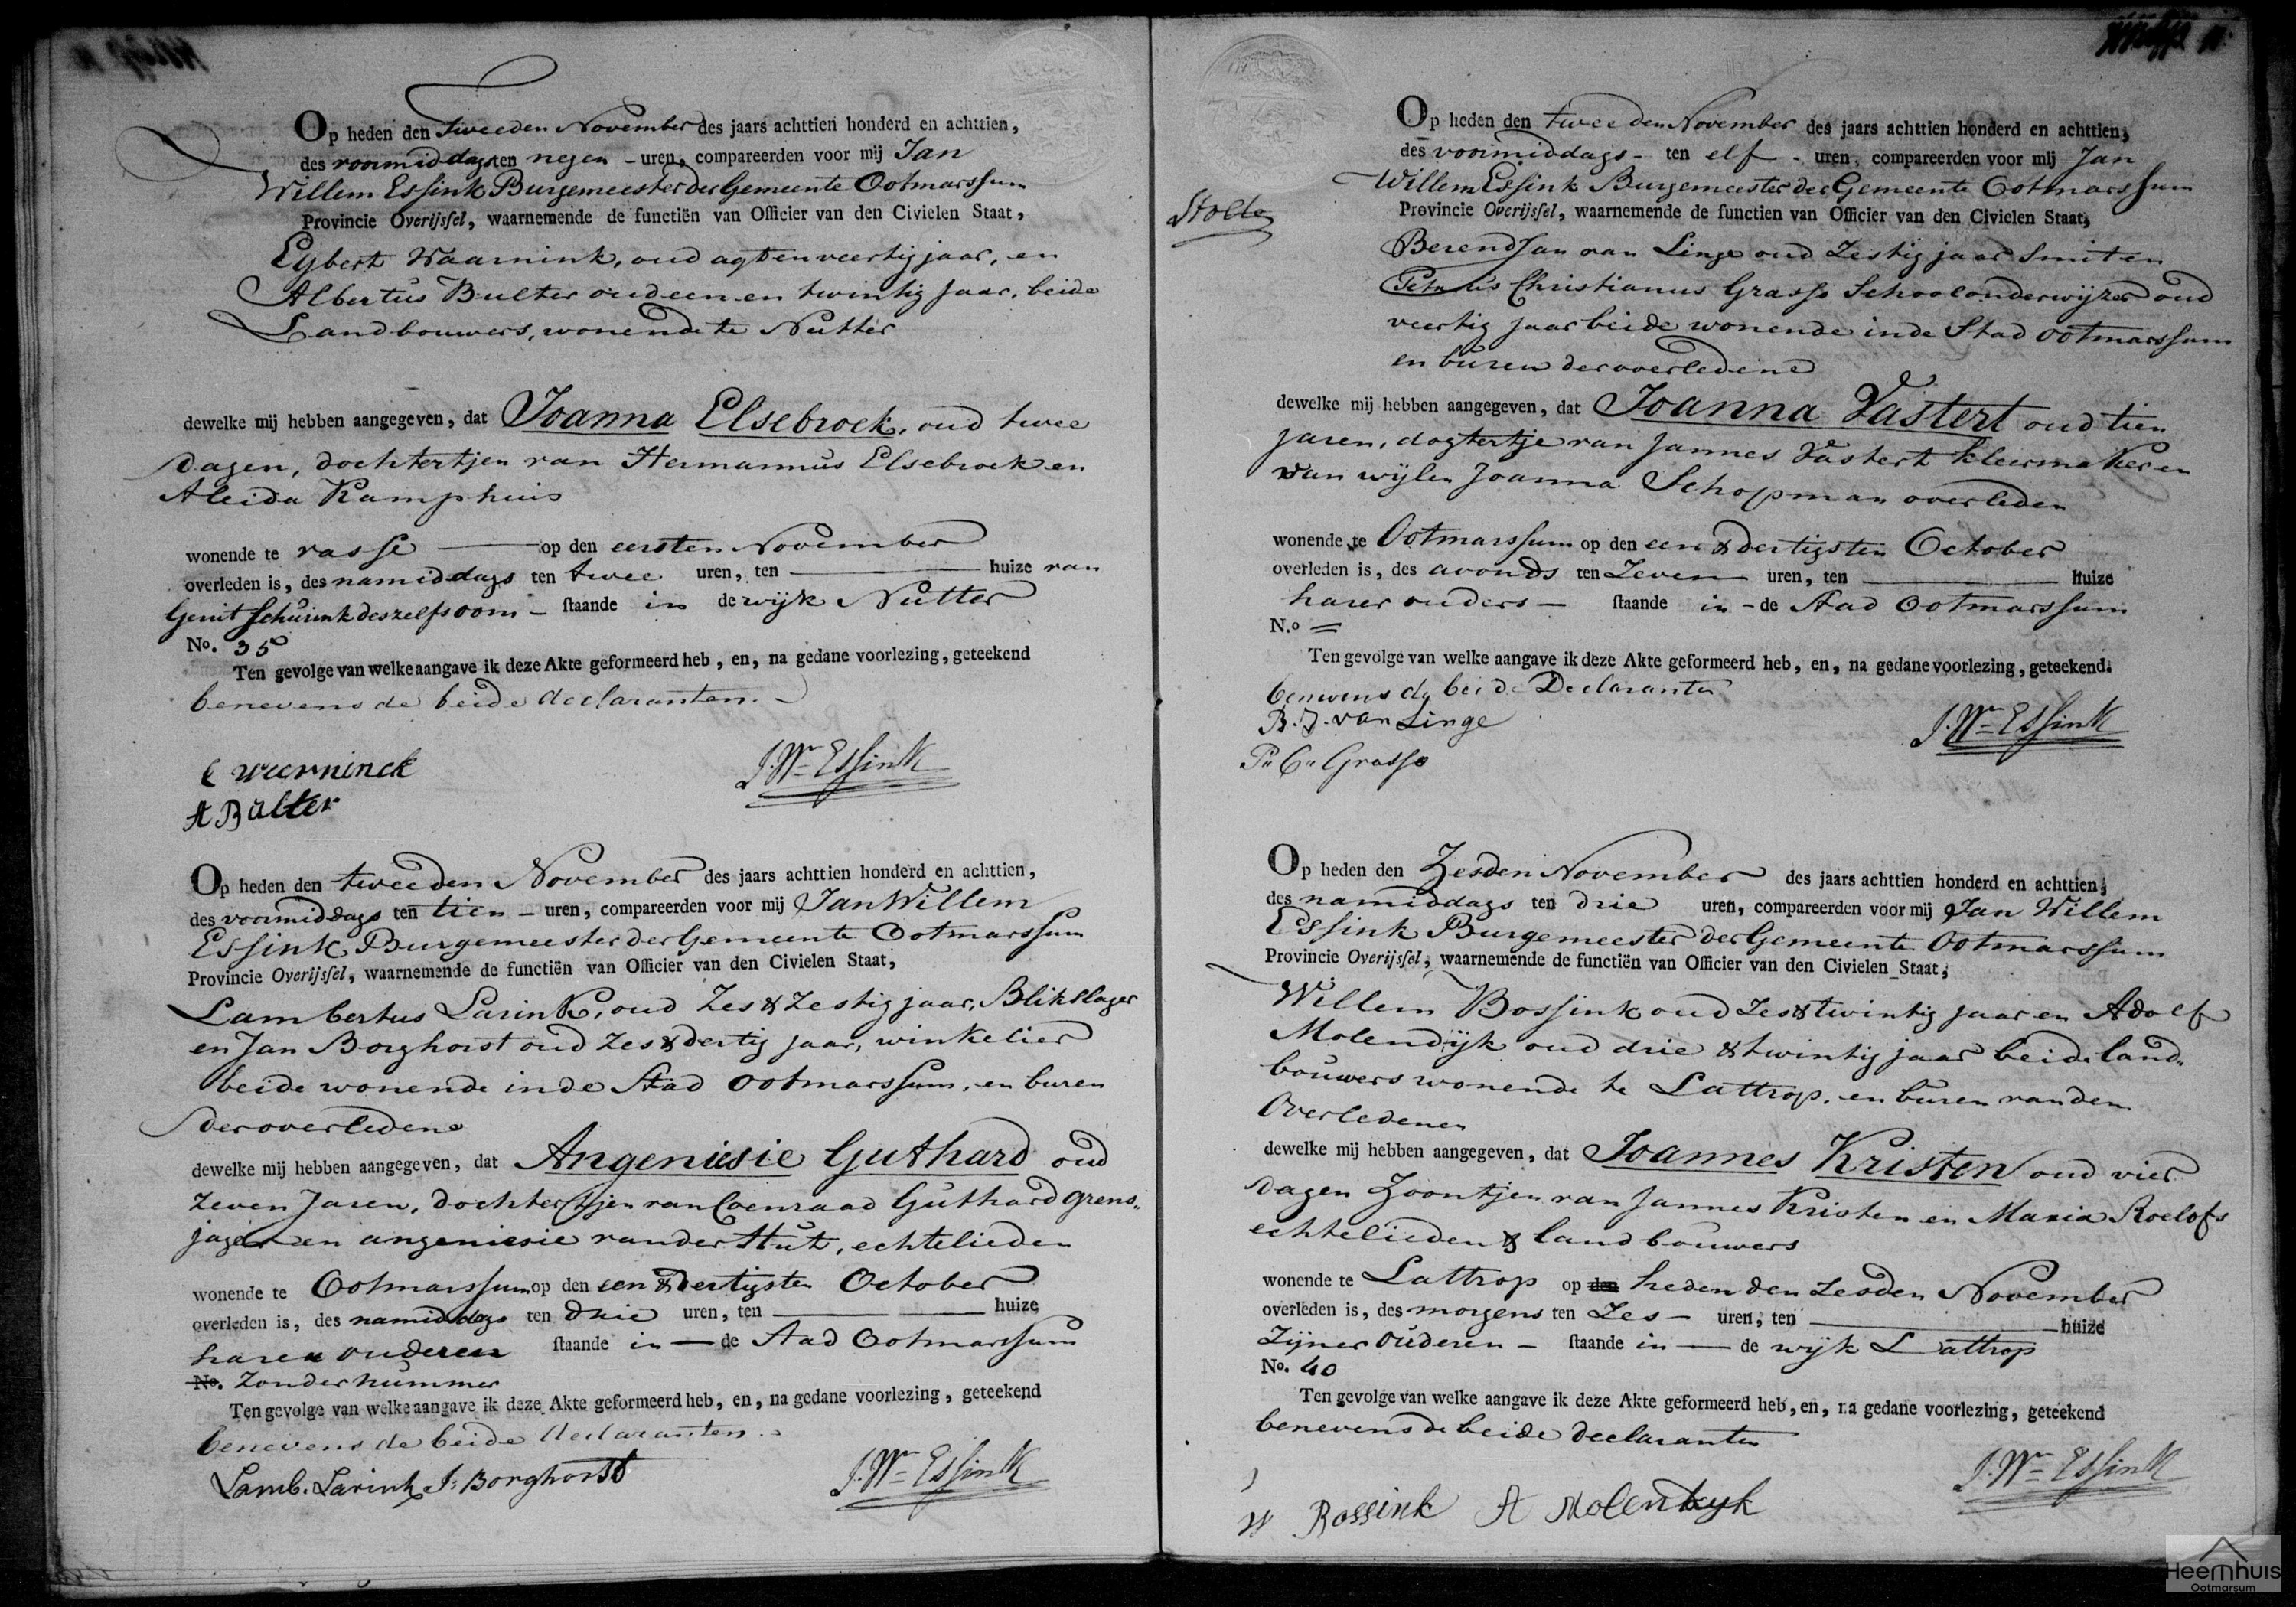 Op heden den Tweeden November des jaars achttien honderd en achttien,
des voormiddags ten negen – uren, compareerden voor mij Jan
Willem Essink Burgemeester der Gemeente Ootmarssum
Provincie Overijssel, waarnemende de functiën van Officier van den Civielen Staat,
Egbert Waarnink, oud agtenveertig jaar, en
Albertus Bulter oud een en twintig Jaar, beide
Landbouwers, wonende te Nutter
dewelke mij hebben aangegeven, dat Joanna Elsebroek, oud twee
dagen, dochtertjen van Hermannus Elsebroek en
Aleida Kamphuis
wonende te vasse — op den eersten November
overleden is, des namiddags ten twee uren, ten — huize van
Gerrit Schurink deszelfs oom – staande in de wijk Nutter
No. 35
Ten gevolge van welke aangave ik deze Akte geformeerd heb, en, na gedane voorlezing, geteekend
benevens de beide declaranten.
E weerninck
A Bulter
J. Wm Essink
Op heden den tweeden November des jaars achttien honderd en achttien,
des voormiddags ten tien – uren, compareerden voor mij Jan Willem
Essink Burgemeester der Gemeente Ootmarssum
Provincie Overijssel, waarnemende de functiën van Officier van den Civielen Staat,
Lambertus Larink, oud Zes & Zestig jaar, Blikslager
en Jan Borghorst oud Zes & dertig jaar, winkelier
beide wonende in de Stad Ootmarssum, en buren
der overledene
dewelke mij hebben aangegeven, dat Angeniesie Guthard oud
Zeven Jaren, dochtertjen van Coenraad Guthard grens„
jager en angeniesie van der Hut, echtelieden
wonende te Ootmarssum op den een & dertigsten October
overleden is, des namiddags ten drie uren, ten — huize
haren ouderen staande in — de Stad Ootmarssum
No. Zonder nummer
Ten gevolge van welke aangave ik deze Akte geformeerd heb, en, na gedane voorlezing, geteekend
benevens de beide declaranten.
Lamb. Larink J: Borghorst
J. Wm Essink
Stolte
Op heden den tweeden November des jaars achttien honderd en achttien,
des voormiddags – ten elf – uren, compareerden voor mij Jan
Willem Essink Burgemeester der Gemeente Ootmarssum
Provincie Overijssel, waarnemende de functien van Officier van den Civielen Staat,
Berend Jan van Linge oud Zestig jaar Smit en
Petrus Christianus Grasso Schoolonderwijzer oud
veertig Jaar beide wonende in de Stad Ootmarssum
en buren der overledene
dewelke mij hebben aangegeven, dat Joanna Vastert oud tien
jaren, dogtertje van Jannes Vastert kleermaker en
van wijlen Joanna Schopman overleden
wonende te Ootmarssum op den een & dertigsten October
overleden is, des avonds ten Zeven uren, ten — huize
harer ouders — staande in – de Stad Ootmarssum
N.o =
Ten gevolge van welke aangave ik deze Akte geformeerd heb, en, na gedane voorlezing, geteekend.
benevens de beide Declaranten
B. J. van Linge
Ps Cs Grasso
J. Wm Essink
Op heden den Zesden November des jaars achttien honderd en achttien,
des namiddags ten drie uren, compareerden voor mij Jan Willem
Essink Burgemeester der Gemeente Ootmarssum
Provincie Overijssel, waarnemende de functiën van Officier van den Civielen Staat,
Willem Bossink oud Zes & twintig jaar en Adolf
Molendijk oud drie & twintig jaar beide land„
bouwers wonende te Lattrop, en buren van den
Overledenen
dewelke mij hebben aangegeven, dat Joannes Kristen oud vier
dagen Zoontjen van Jannes Kristen en Maria Roelofs
echtelieden & landbouwers
wonende te Lattrop op den heden den Zesden November
overleden is, des morgens ten Zes – uren, ten — huize
Zijner Ouderen – staande in — de wijk Lattrop
No. 40
Ten gevolge van welke aangave ik deze Akte geformeerd heb, en, na gedane voorlezing, geteekend
benevens de beide declaranten
W Bossink A Molendyk
J. Wm Essink
Heemhuis
Ootmarsum